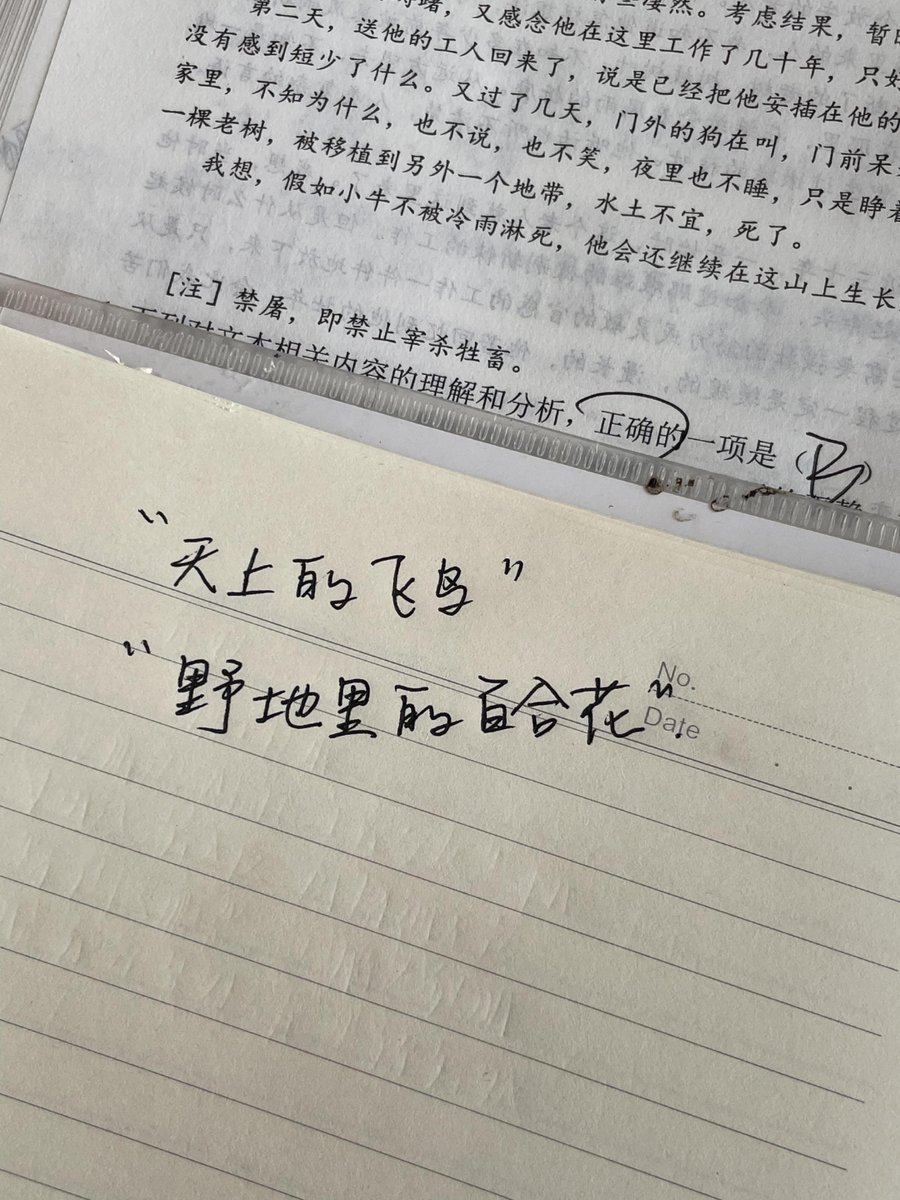 绪，又感念他在这里工作了几十年，只好
凄然。考虑结果，暂
第二天，送他的工人回来了，说是已经把他安插在他的
没有感到短少了什么。又过了几天，门外的狗在叫，门前呆
家里，不知为什么，也不说，也不笑，夜里也不睡，只是睁着
一棵老树，被移植到另外一个地带，水土不宜，死了。
我想，假如小牛不被冷雨淋死，他会还继续在这山上生长
[注] 禁屠，即禁止宰杀牲畜。
下列对文本相关内容的理解和分析，正确的一项是（B）
“天上的飞鸟”
“野地里的百合花”.
No.
Date